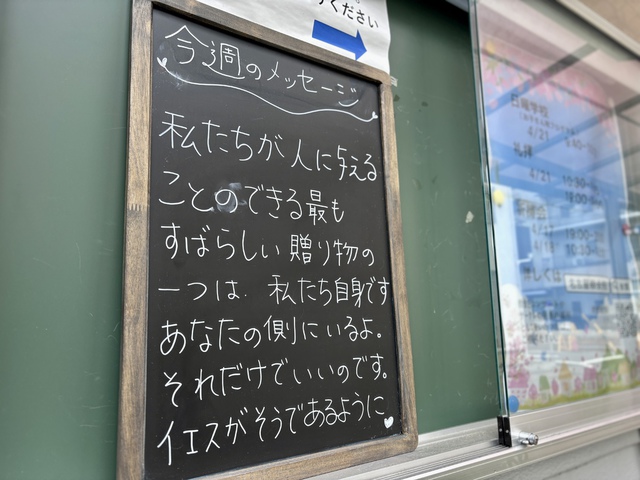 ください
今週のメッセージ
私たちが人に与える
ことのできる最も
すばらしい贈り物の
一つは、私たち自身です
あなたの側にいるよ。
それだけでいいのです。
イエスがそうであるように
日曜学校
4/21
礼拝
4/21 10:30~